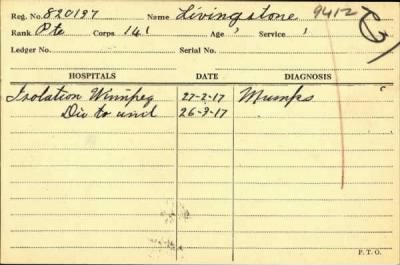 Reg. No. 820197 Name Livingstone 9412
Rank Pte Corps 141 Age Service
Ledger No. Serial No.
HOSPITALS DATE DIAGNOSIS
Isolation Winnipeg 27-2-17 Mumps
Dis to unit 26-3-17
P. T. O.